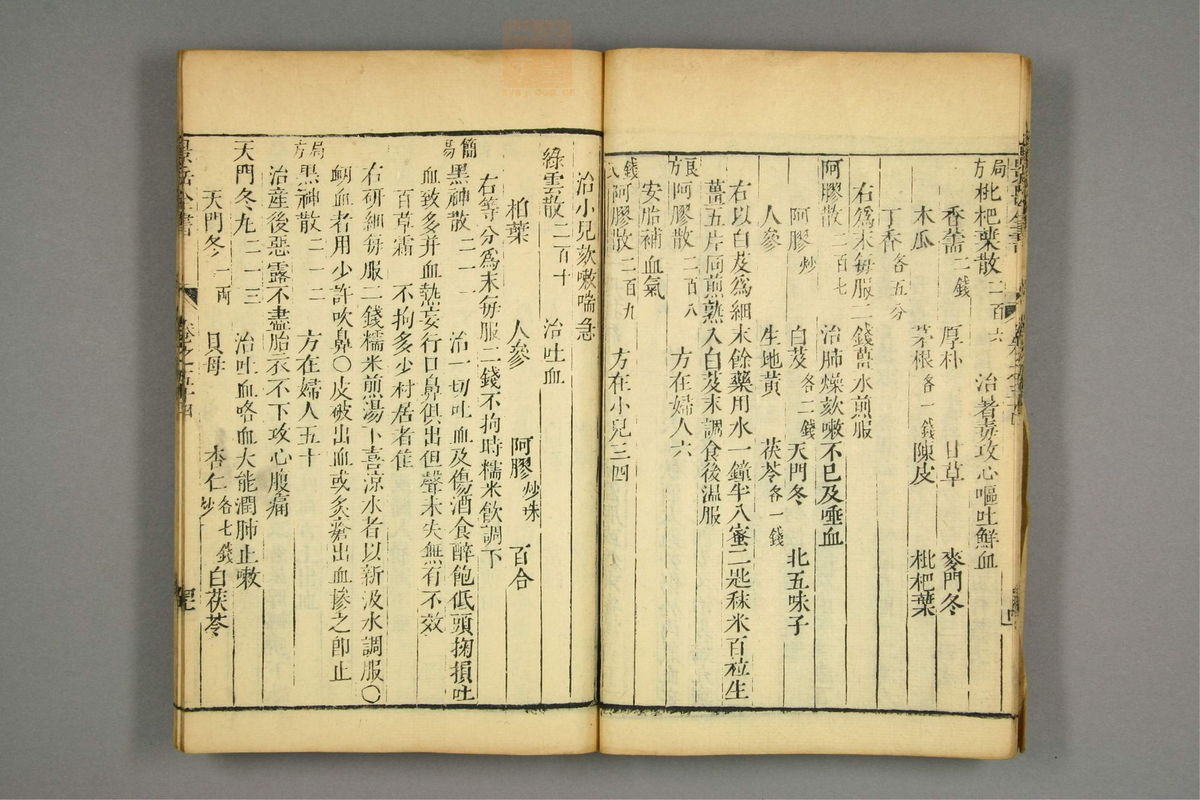 局方枇杷葉散二百六 治暑毒攻心嘔吐鮮血
香薷二錢 厚朴 甘草 麥門冬
木瓜 茅根各一錢 陳皮 枇杷葉
丁香各五分
右爲末每服二錢薑水煎服
阿膠散二百七 治肺燥欬嗽不已及唾血
阿膠炒 白芨各二錢 天門冬 北五味子
人參 生地黄 茯苓各一錢
右以白芨爲細末餘藥用水一鐘半入蜜二匙秫米百粒生
薑五片同煎熟入白芨末調食後溫服
良方阿膠散二百八 方在婦人六
安胎補血氣
錢氏阿膠散二百九 方在小兒三四
治小兒欬嗽喘急
綠雲散二百十 治吐血
柏葉 人參 阿膠炒珠 百合
右等分爲末每服二錢不拘時糯米飲調下
簡易黑神散二一一 治一切吐血及傷酒食醉飽低頭掬損吐
血致多并血熱妄行口鼻俱出但聲未失無有不效
百草霜 不拘多少村居者佳
右研細每服二錢糯米煎湯下喜涼水者以新汲水調服〇
衂血者用少許吹鼻〇皮破出血或灸瘡出血摻之卽止
局方黑神散二一二 方在婦人五十
治産後惡露不盡胎衣不下攻心腹痛
天門冬丸二一三 治吐血咯血大能潤肺止嗽
天門冬一兩 貝母 杏仁炒各七錢 白茯苓
景岳全書